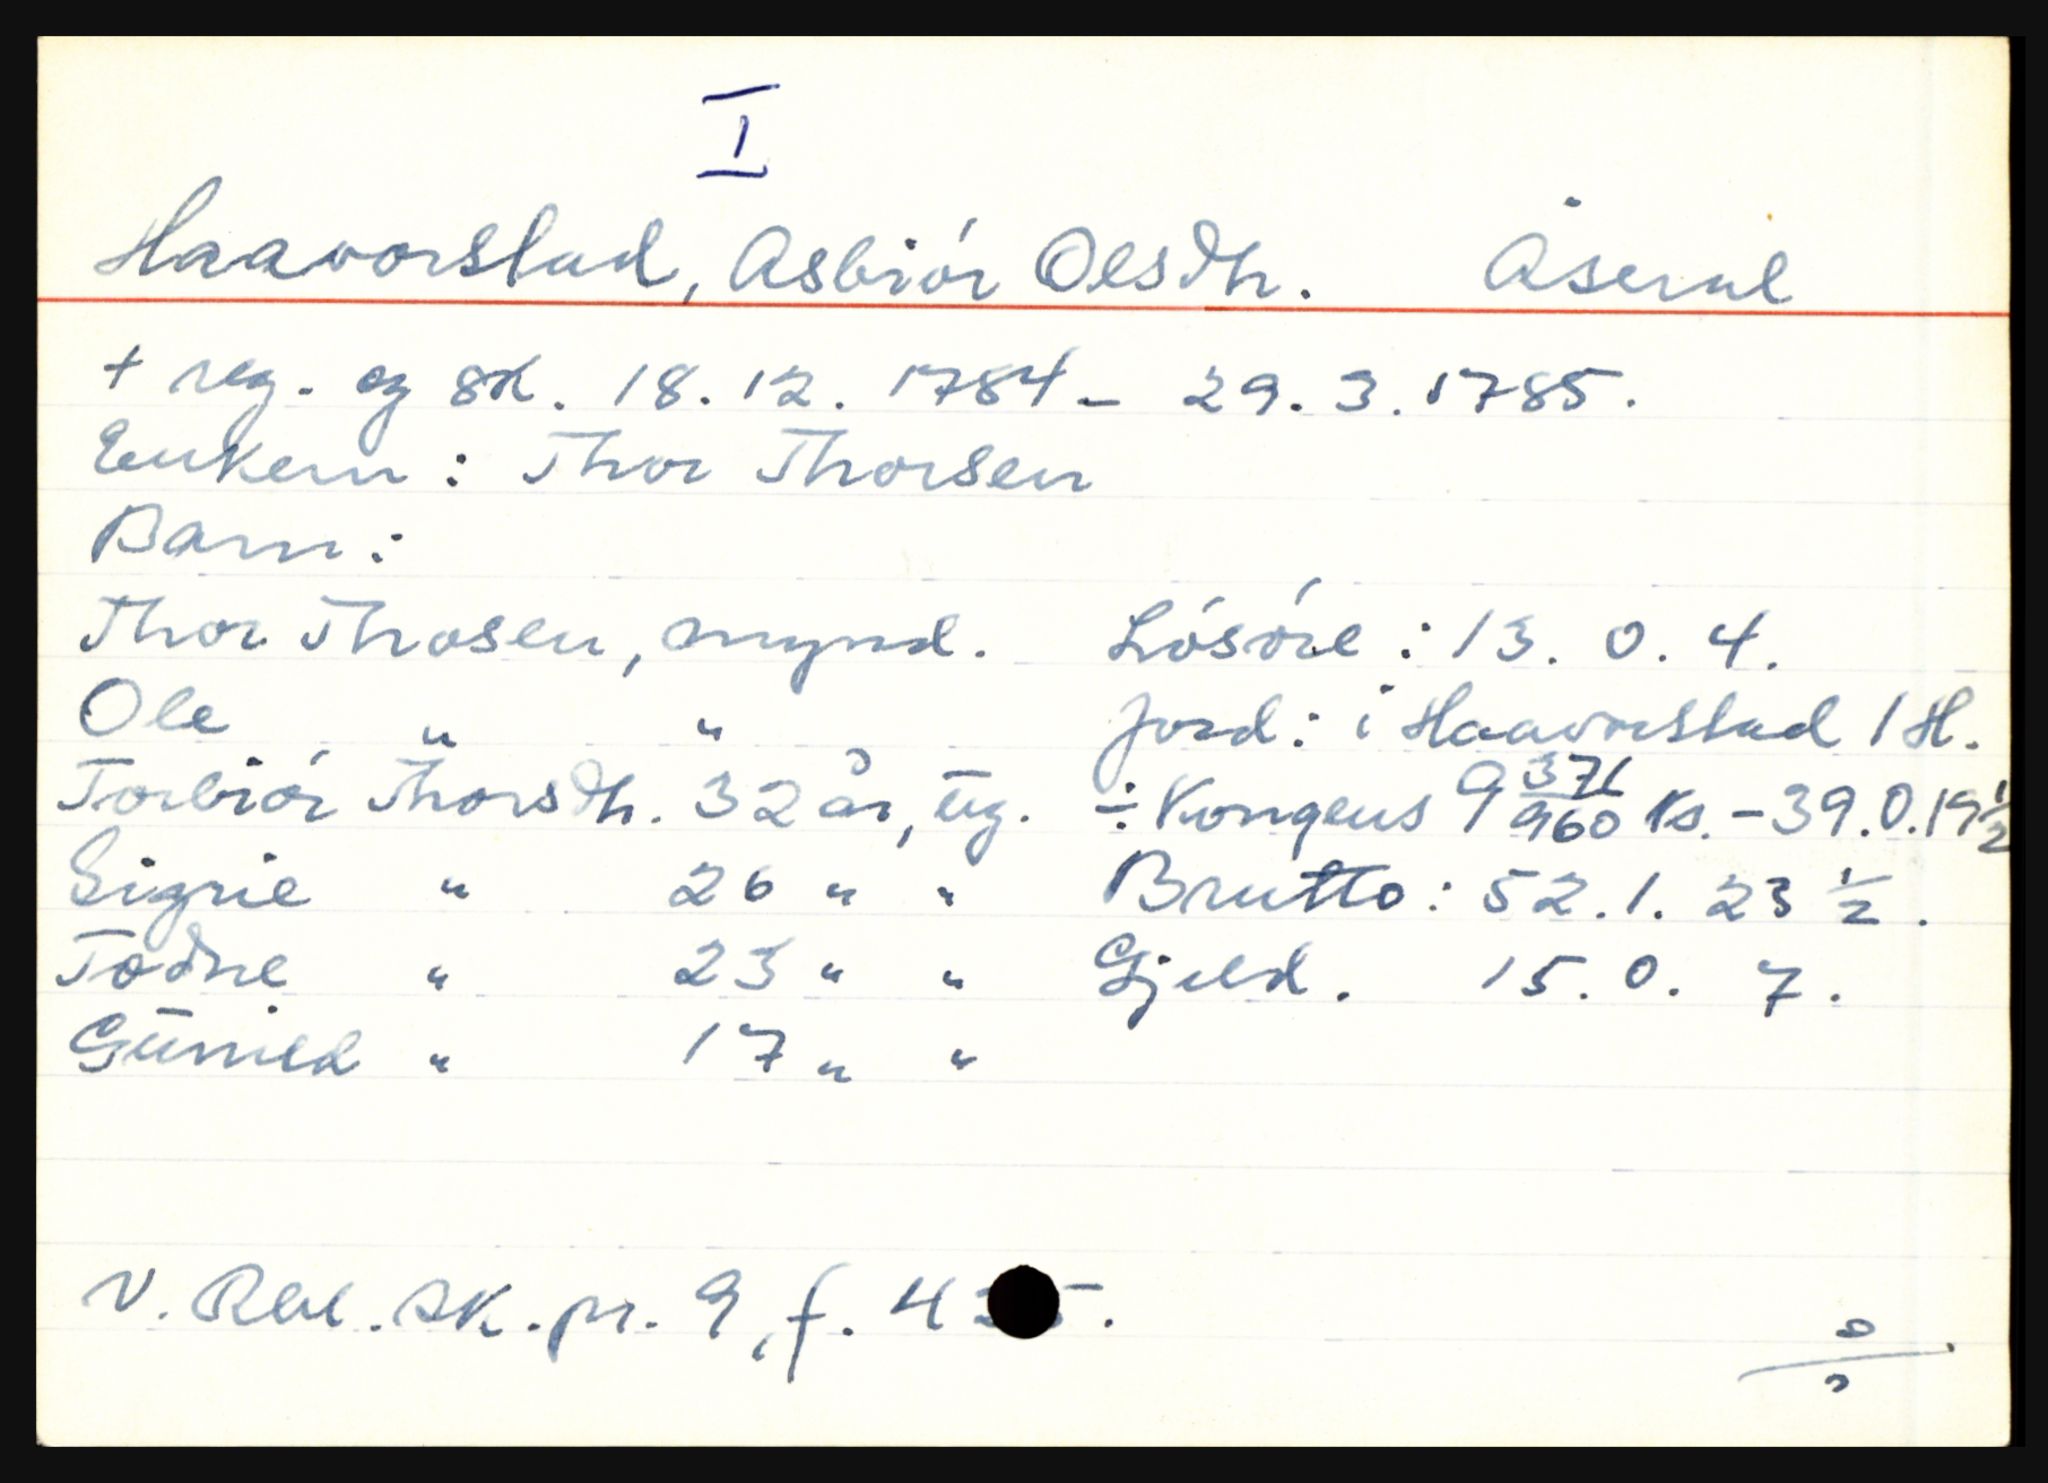 I
Haavorstad, Asbiór Olsdtr. Åseral
+ reg. og sk. 18. 12. 1784 - 29. 3. 1785.
Enkem: Thor Thorsen
Barn:
Thor Thosen, mynd. Lósóre: 13. 0. 4.
Ole " " Jord: i Haavorstad 1 H.
Torbiór Thorsdtr. 32 år, ug. ÷ Kongens 9 371/960 Ks. - 39. 0. 19 1/2
Sigrie " 26 " " Brutto: 52. 1. 23 1/2.
Todne " 23 " " Gjeld. 15. 0. 7.
Gunild " 17 " "
V. Rbl. sk. pr. 9, f.